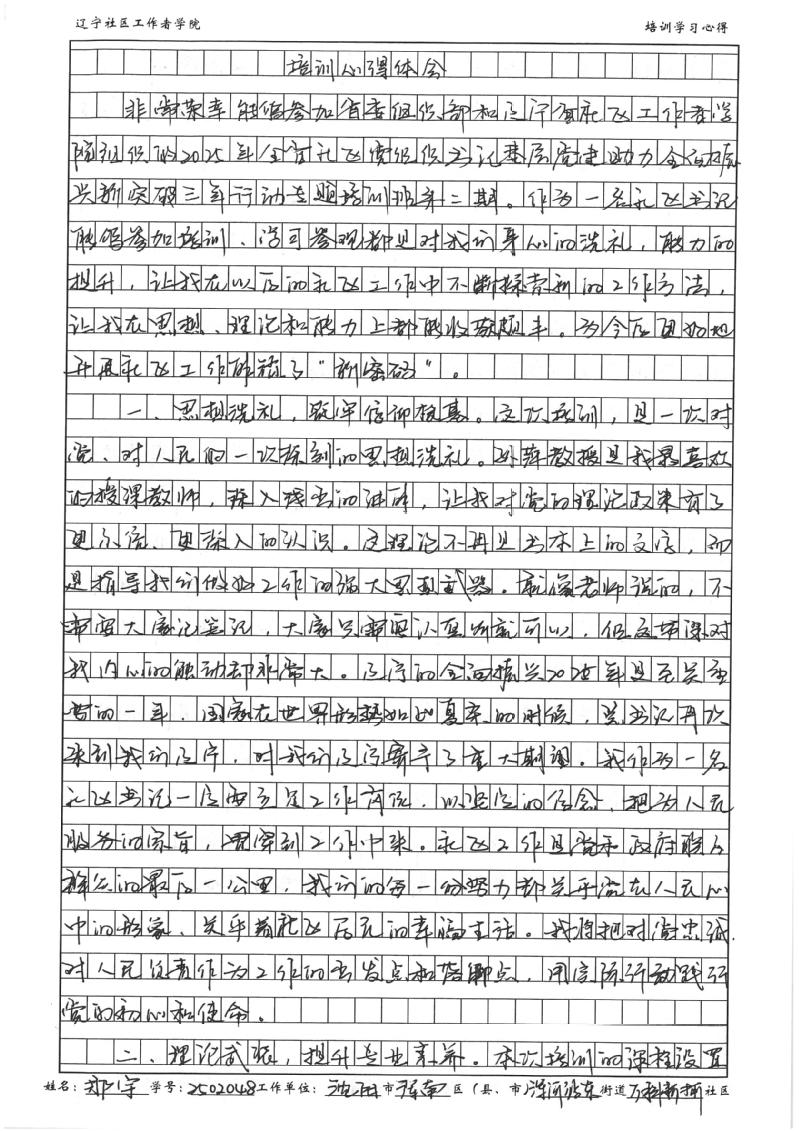 辽宁社区工作者学院 培训学习心得
培训心得体会
非常荣幸能够参加省委组织部和辽宁省社区工作者学
院组织的2025年全省社区党组织书记基层党建助力全面振
兴新突破三年行动专题培训班第二期。作为一名社区书记
能够参加培训、学习参观都是对我们身心的洗礼,能力的
提升,让我在以后的社区工作中不断探索新的工作方法,
让我在思想、理论和能力上都能收获颇丰。为今后更好地
开展社区工作解锁了“新密码”。
一、思想洗礼,筑牢信仰根基。这次培训,是一次对
党、对人民的一次深刻的思想洗礼。 教授是我最喜欢
的授课教师,深入浅出的讲解,让我对党的理论政策有了
更系统、更深入的认识。这理论不再是书本上的文字,而
是指导我们做好工作的强大思想武器。就像老师说的,不
需要大家记笔记,大家只需要认真听就可以,但这节课对
我内心的触动却非常大。辽宁的全面振兴2025年是至关重
要的一年,国家在世界形势如此复杂的时候,总书记再次
来到我们辽宁,对我们辽宁寄予了重大期望。我作为一名
社区书记一定要立足工作岗位,以坚定的信念,把为人民
服务的宗旨,贯穿到工作中来。社区工作是党和政府联系
群众的最后一公里,我们的每一份努力都关乎党在人民心
中的形象、关乎着社区居民的幸福生活。我将把对党忠诚、
对人民负责作为工作的出发点和落脚点,用实际行动践行
党的初心和使命。
二、理论武装,提升专业素养。本次培训的课程设置
姓名:郑宇 学号:2502048 工作单位:沈阳市浑南区(县、市)浑河站东街道万科新榆社区